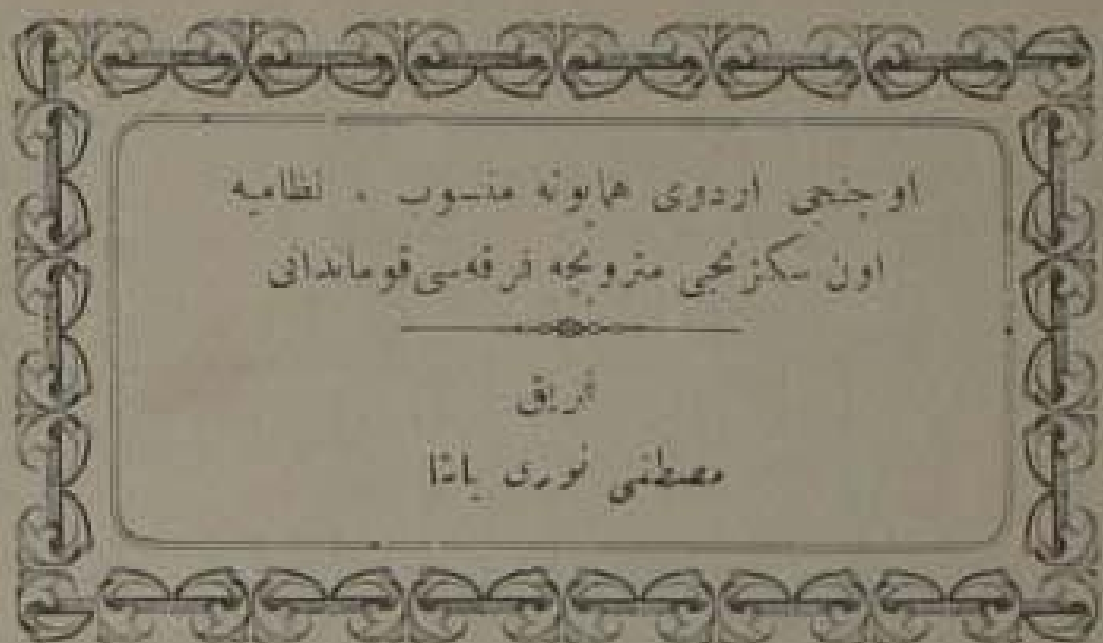 اوچنجی اردوی همایونه منسوب ، نظامیه
اون سکزنجی متروپچه فرقه‌سی قوماندانی
فریق
مصطفی نوری پاشا